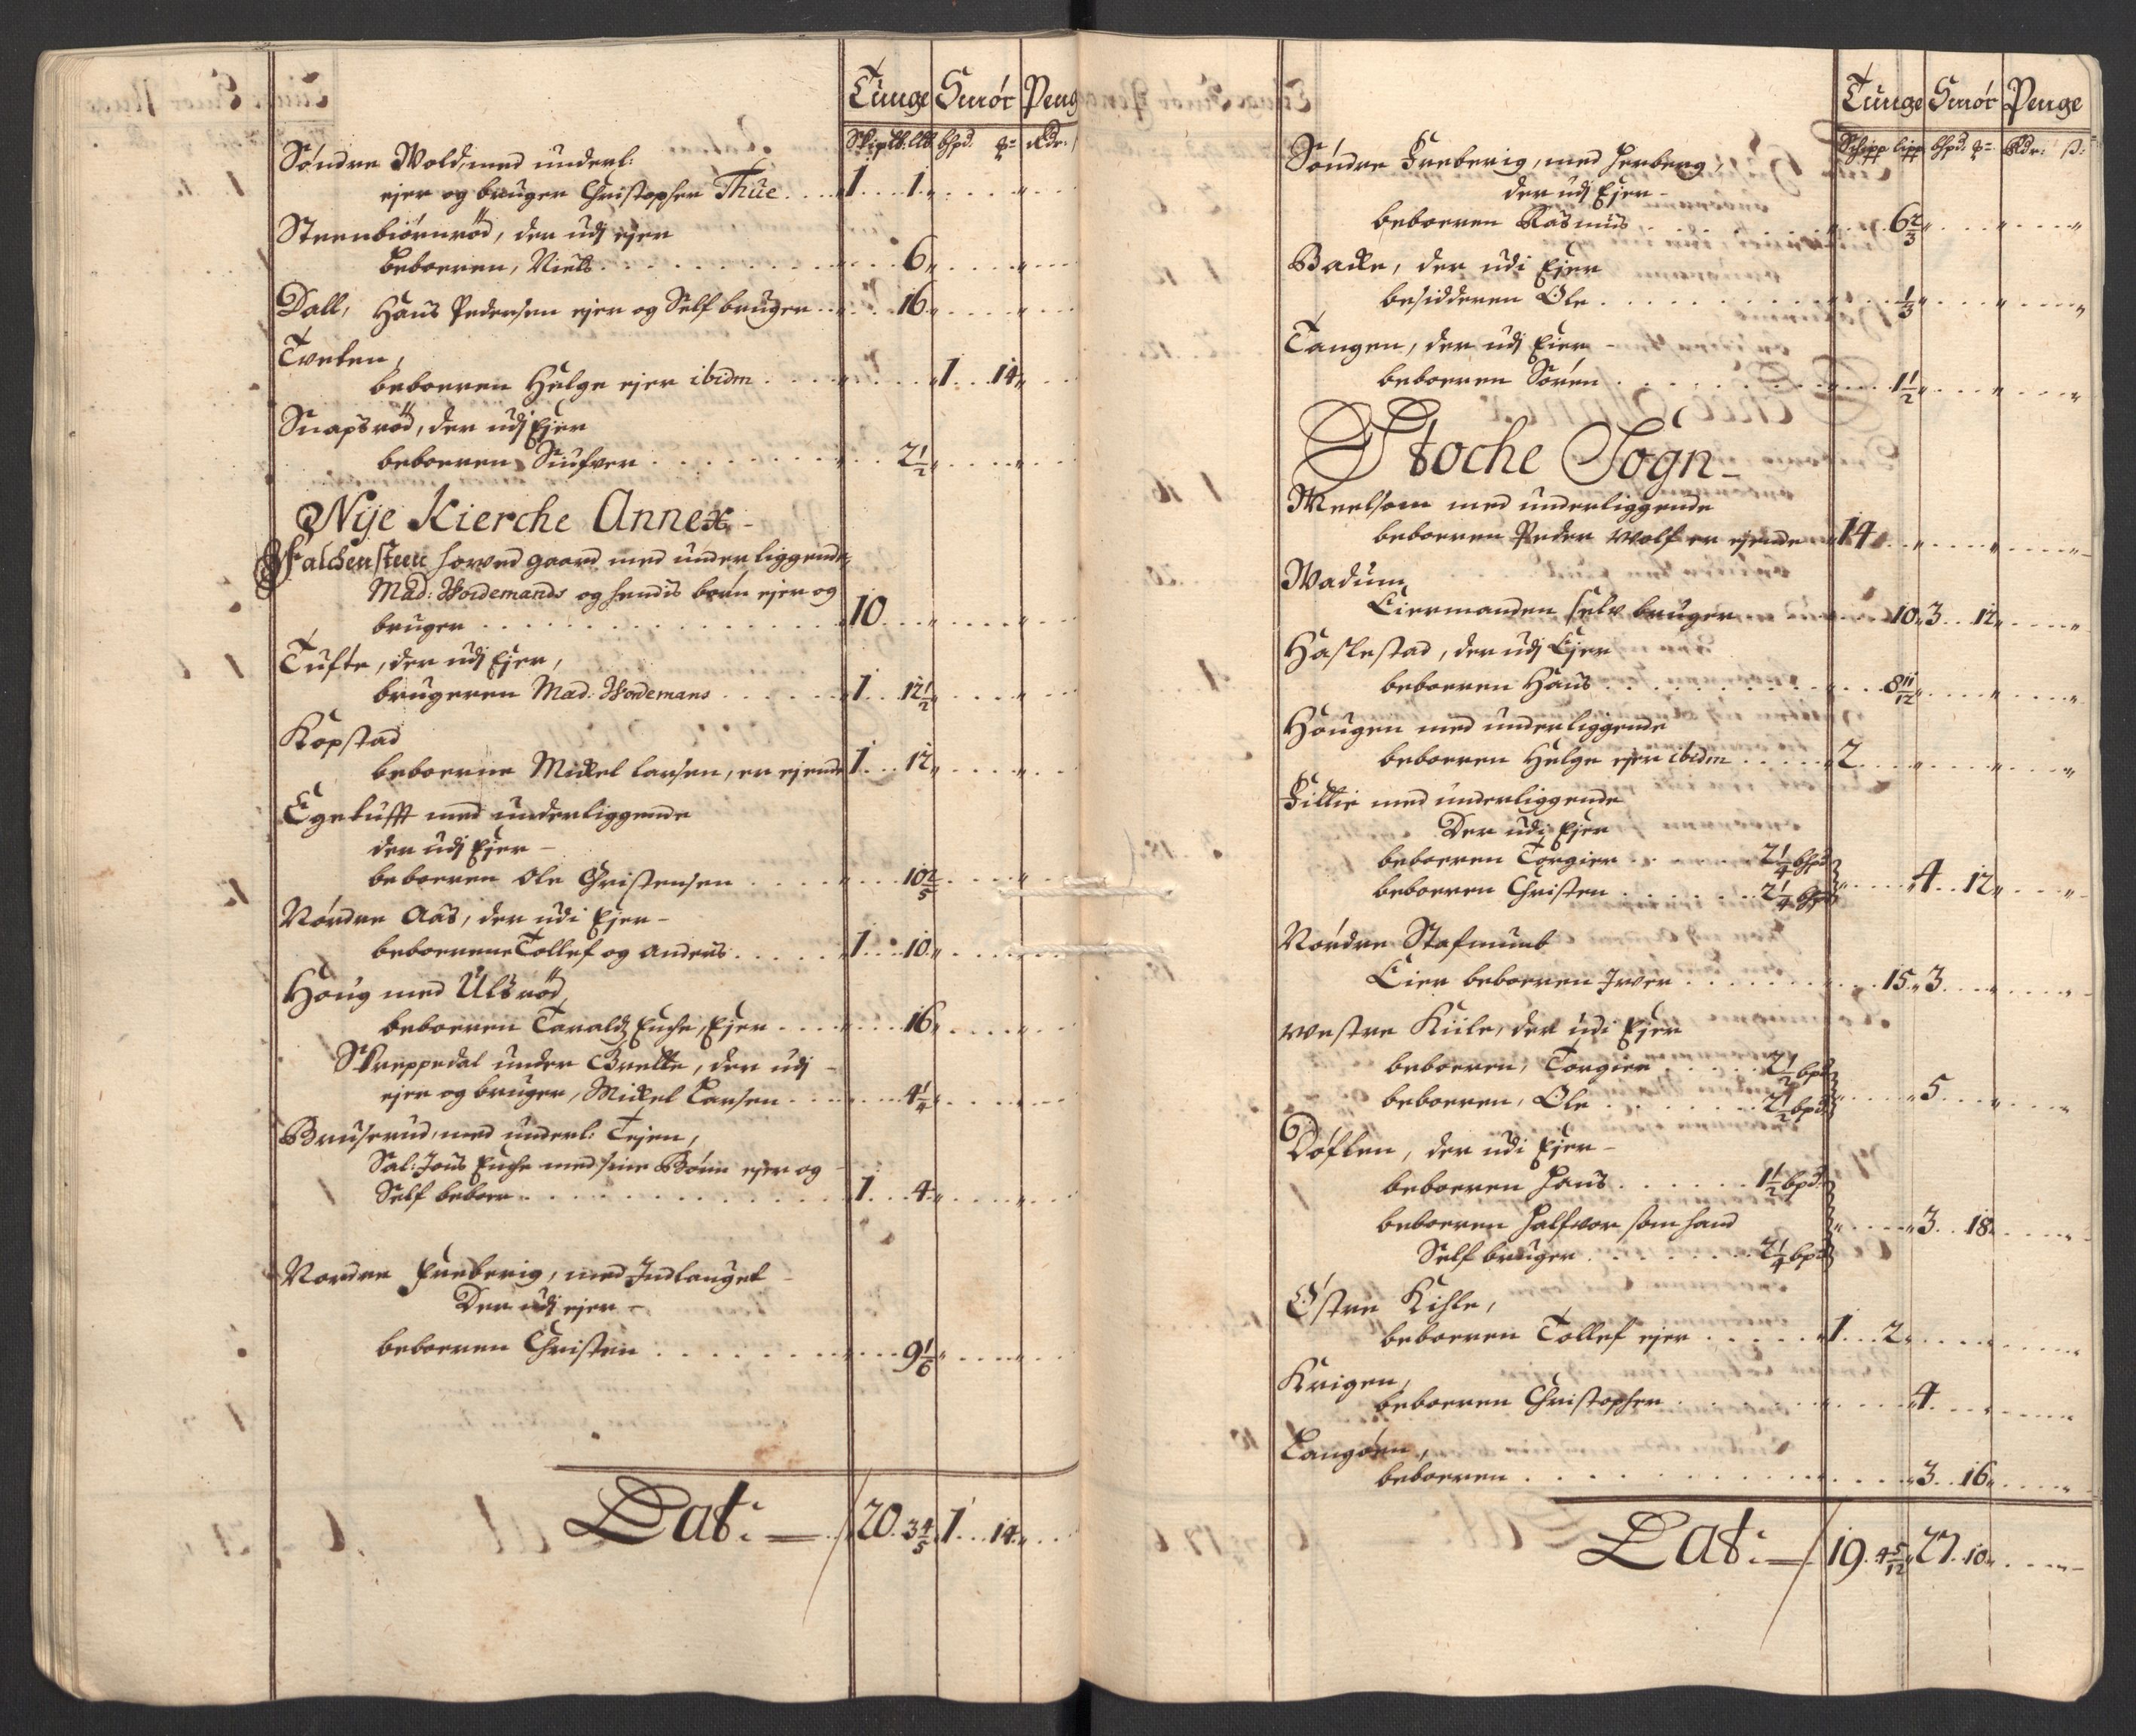 Tunge Smør Penge
Skiplb. llb. bpd. Rdr:
Søndre Wold, med underl:
ejer og bruger Christopher Thüe . . . 1 . . . 1
Steenbiørnrød, der udj ejer
beboeren, Niels . . . 6
Dall, Hans Pedersen ejer og Self bruger . . . 16
Tveten,
beboeren Helge ejer ibidm . . . 1 . . 14
Snapsrød, der udj Ejer
beboeren Siufver . . . 2 1/2
Nije Kierche Annex
Falchensteen hoved gaard med underliggende,
Mad: Wordemands og hendis børn ejer og
bruger . . . 10
Tufte, der udj Ejer,
brugeren Mad: Wordemans . . . 1 . . 12 1/2
Kopstad
beboerne Mickel Larsen, er ejende 1 . . . 12
Egetufft med underliggende
der udj Ejer
beboeren Ole Christensen . . . 10 2/5
Nordre Aas, der udi Ejer
beboerene Tollef og Anders . . . 1 . . . 10
Houg med Ulsrød,
beboeren Taraldz Enche, Ejer . . . 16
Skreppedal under Brette, der udj
ejer og bruger, Mickel Larsen . . . 4 1/4
Bruserud, med underl: Tejen,
Sal: Jens Enche med sine Børn ejer og
Self beboer . . . 1 . . . 4
Nordre Freberig, med Indlauget
Der udj ejer
beboeren Christen . . . 9 1/6
Lat: — 20 . 3 4/5 . 1 . . 14
Tunge Smør Penge
Schipp lipp bpd: Rdr: ß:
Søndre Freberig, med Herberg,
der udj Ejer
beboeren Rasmus . . . 6 2/3
Backe, der udi Ejer
besidderen Ole . . . 1/3
Tangen, der udj Ejer
beboeren Søren . . . 1 1/2
Stoche Sogn
Meelsom med underliggende
beboeren Peder Wolf er ejende 14
Wadum,
Eiermanden selv bruger . . . 10 . 3 . . 12
Haskestad, der udj Ejer
beboeren Hans . . . 8 11/12
Hougen med underliggende
beboeren Helge ejer ibidm . . . 2
Fillie med underliggende
Der udj Ejer
beboeren Torgier . . . 2 1/4 bpd
beboeren Christen . . . 2 1/4 bpd . . . 4 . . 12
Nordre Stafnumb
Eier beboeren Iver . . . 15 . 3
westre Kiile, der udi Ejer
beboeren, Torgier . . . 2 1/2 bpd
beboeren, Ole . . . 2 1/2 bpd . . . 5
Døflen, der udi Ejer
beboeren Hans . . . 1 1/2 bpd
beboeren Halfvor som hand
Self bruger . . . 2 1/4 bpd . . . 3 . . 18
Østre Kihle,
beboeren Tollef ejer . . . 1 . . . 2
Krigen,
beboeren Christopher . . . 4
Langøen,
beboeren . . . 3 . . 16
Lat: — 19 . 4 5/12 . 27 . 10